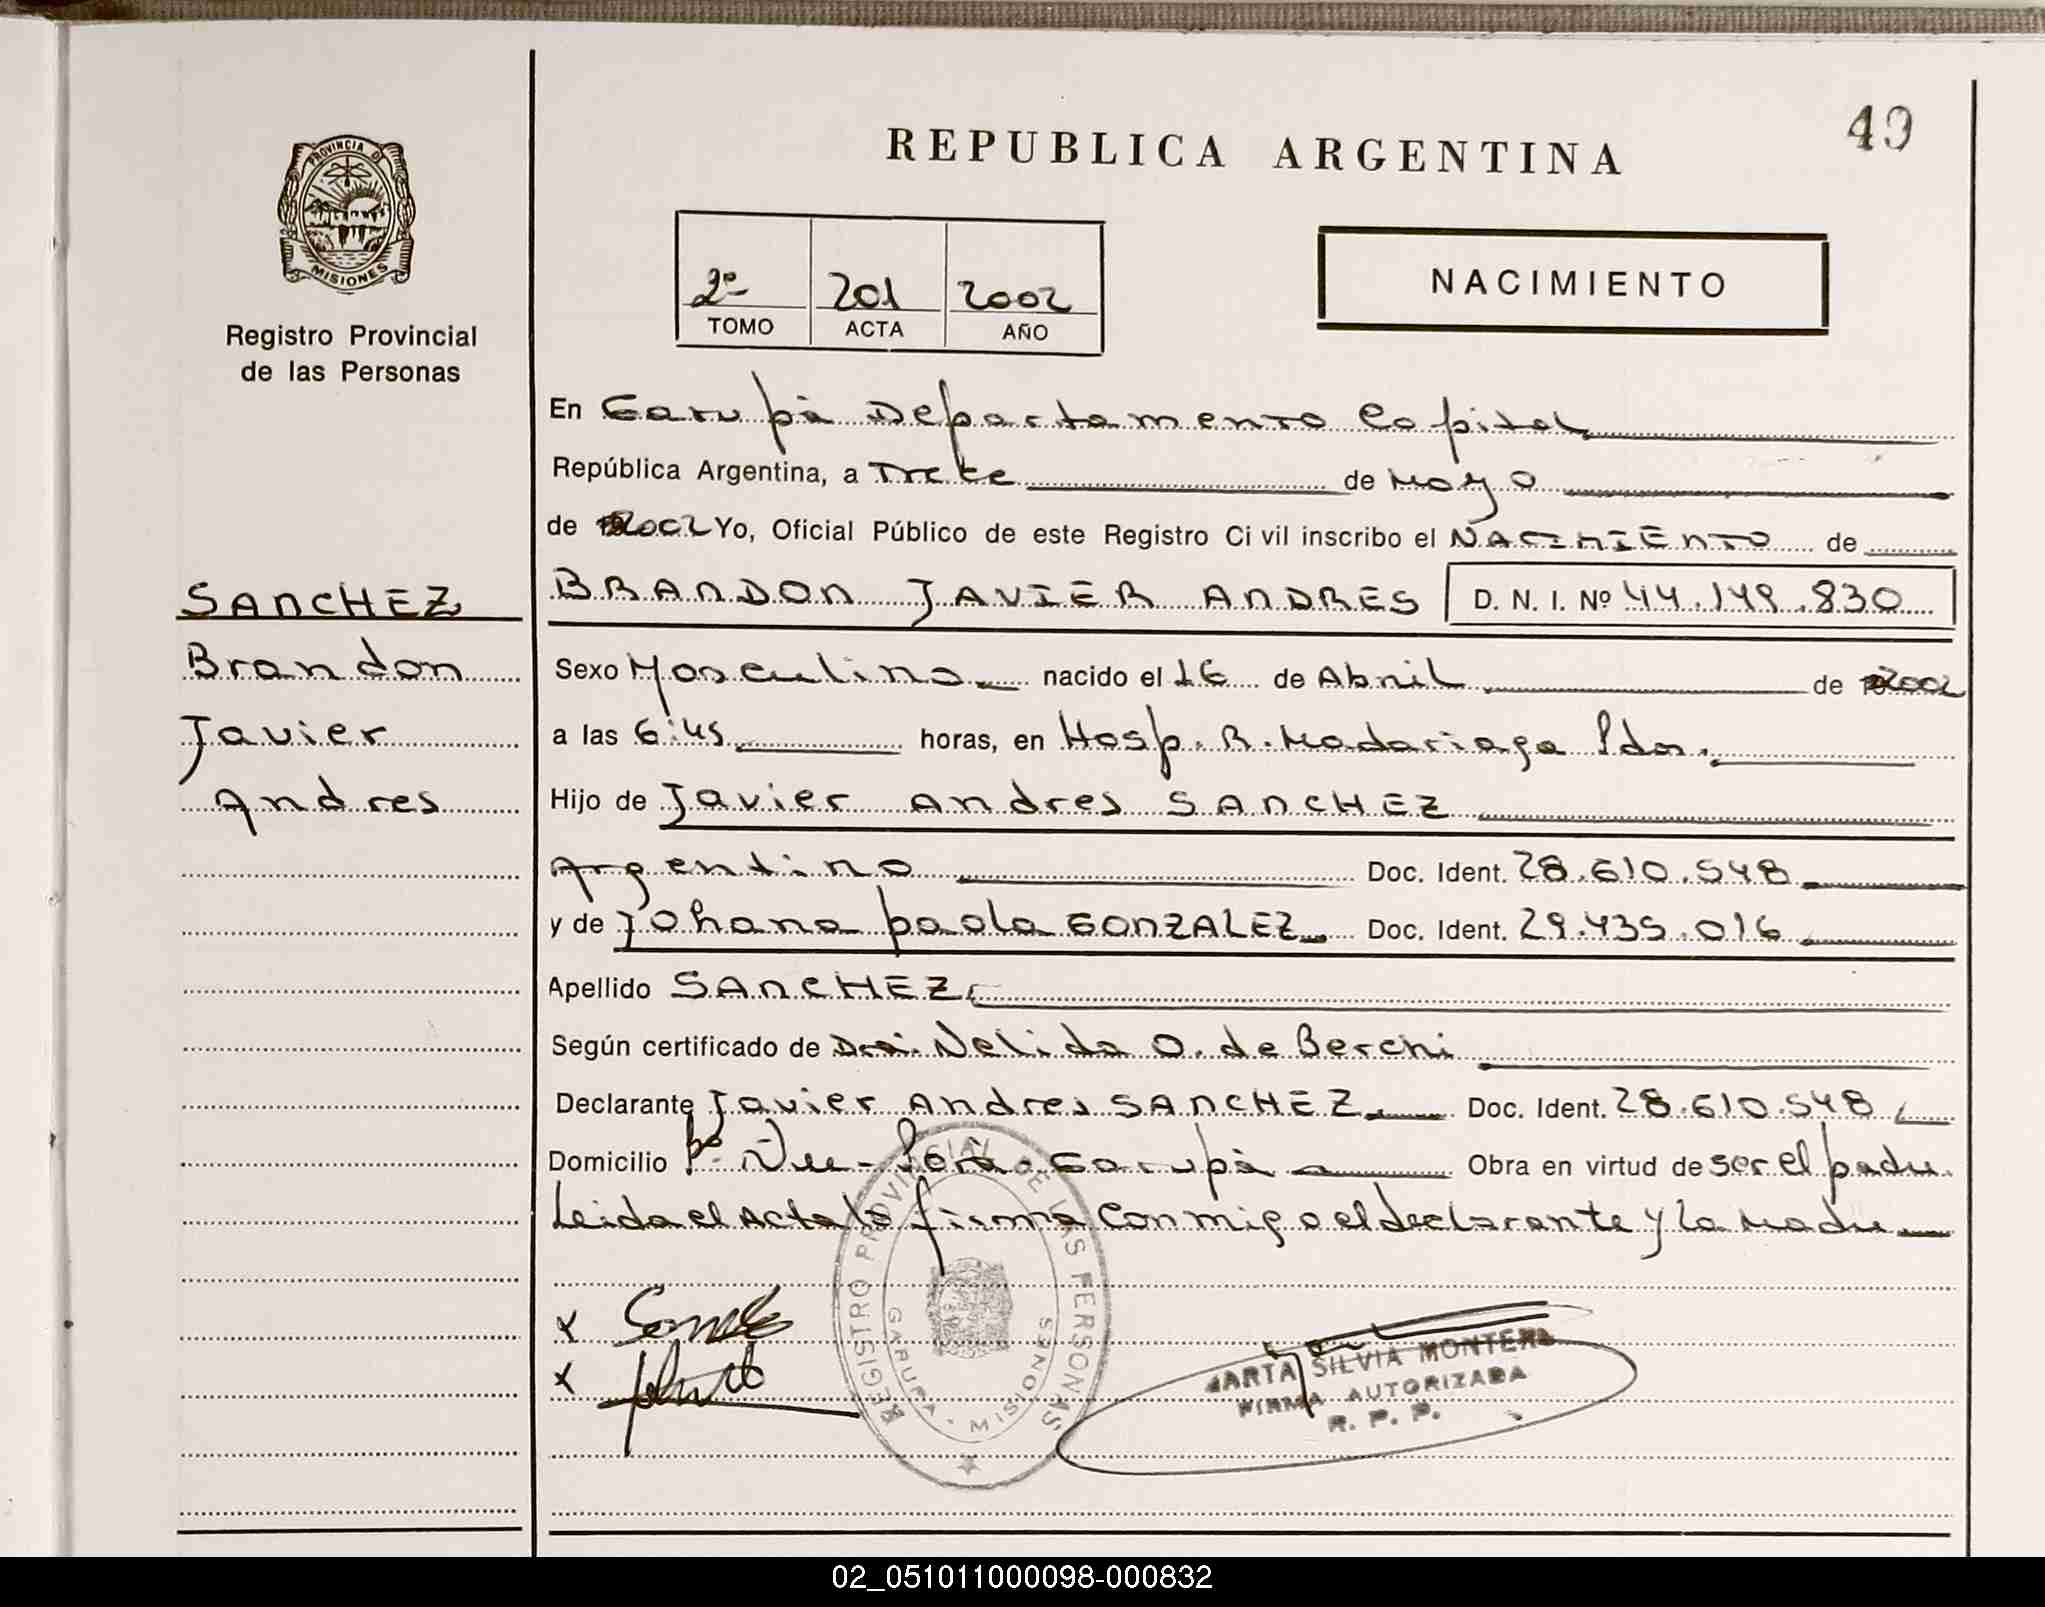 49
REPUBLICA ARGENTINA
PROVINCIA D
MISIONES
Registro Provincial
de las Personas
2º 201 2002
TOMO ACTA AÑO
NACIMIENTO
En Garupá Departamento Capital
República Argentina, a Trece de Mayo
de 2002 Yo, Oficial Público de este Registro Civil inscribo el NACIMIENTO de
SANCHEZ
Brandon
Javier
Andres
BRANDON JAVIER ANDRES D. N. I. Nº 44.149.830
Sexo Masculino nacido el 16 de Abril de 2002
a las 6:45 horas, en Hosp. R. Madariaga Pdas.
Hijo de Javier Andres SANCHEZ
Argentino Doc. Ident. 28.610.548
y de Johana paola GONZALEZ Doc. Ident. 29.435.016
Apellido SANCHEZ
Según certificado de Dra. Nelida O. de Berchi
Declarante Javier Andres SANCHEZ Doc. Ident. 28.610.548
Domicilio Bº Ñu-Porá-Garupá Obra en virtud de ser el padre
Leida el Acta la firma conmigo el declarante y la Madre
x
x
REGISTRO PROVINCIAL DE LAS PERSONAS
GARUPA - MISIONES
MARTA SILVIA MONTERO
FIRMA AUTORIZADA
R. P. P.
02_051011000098-000832